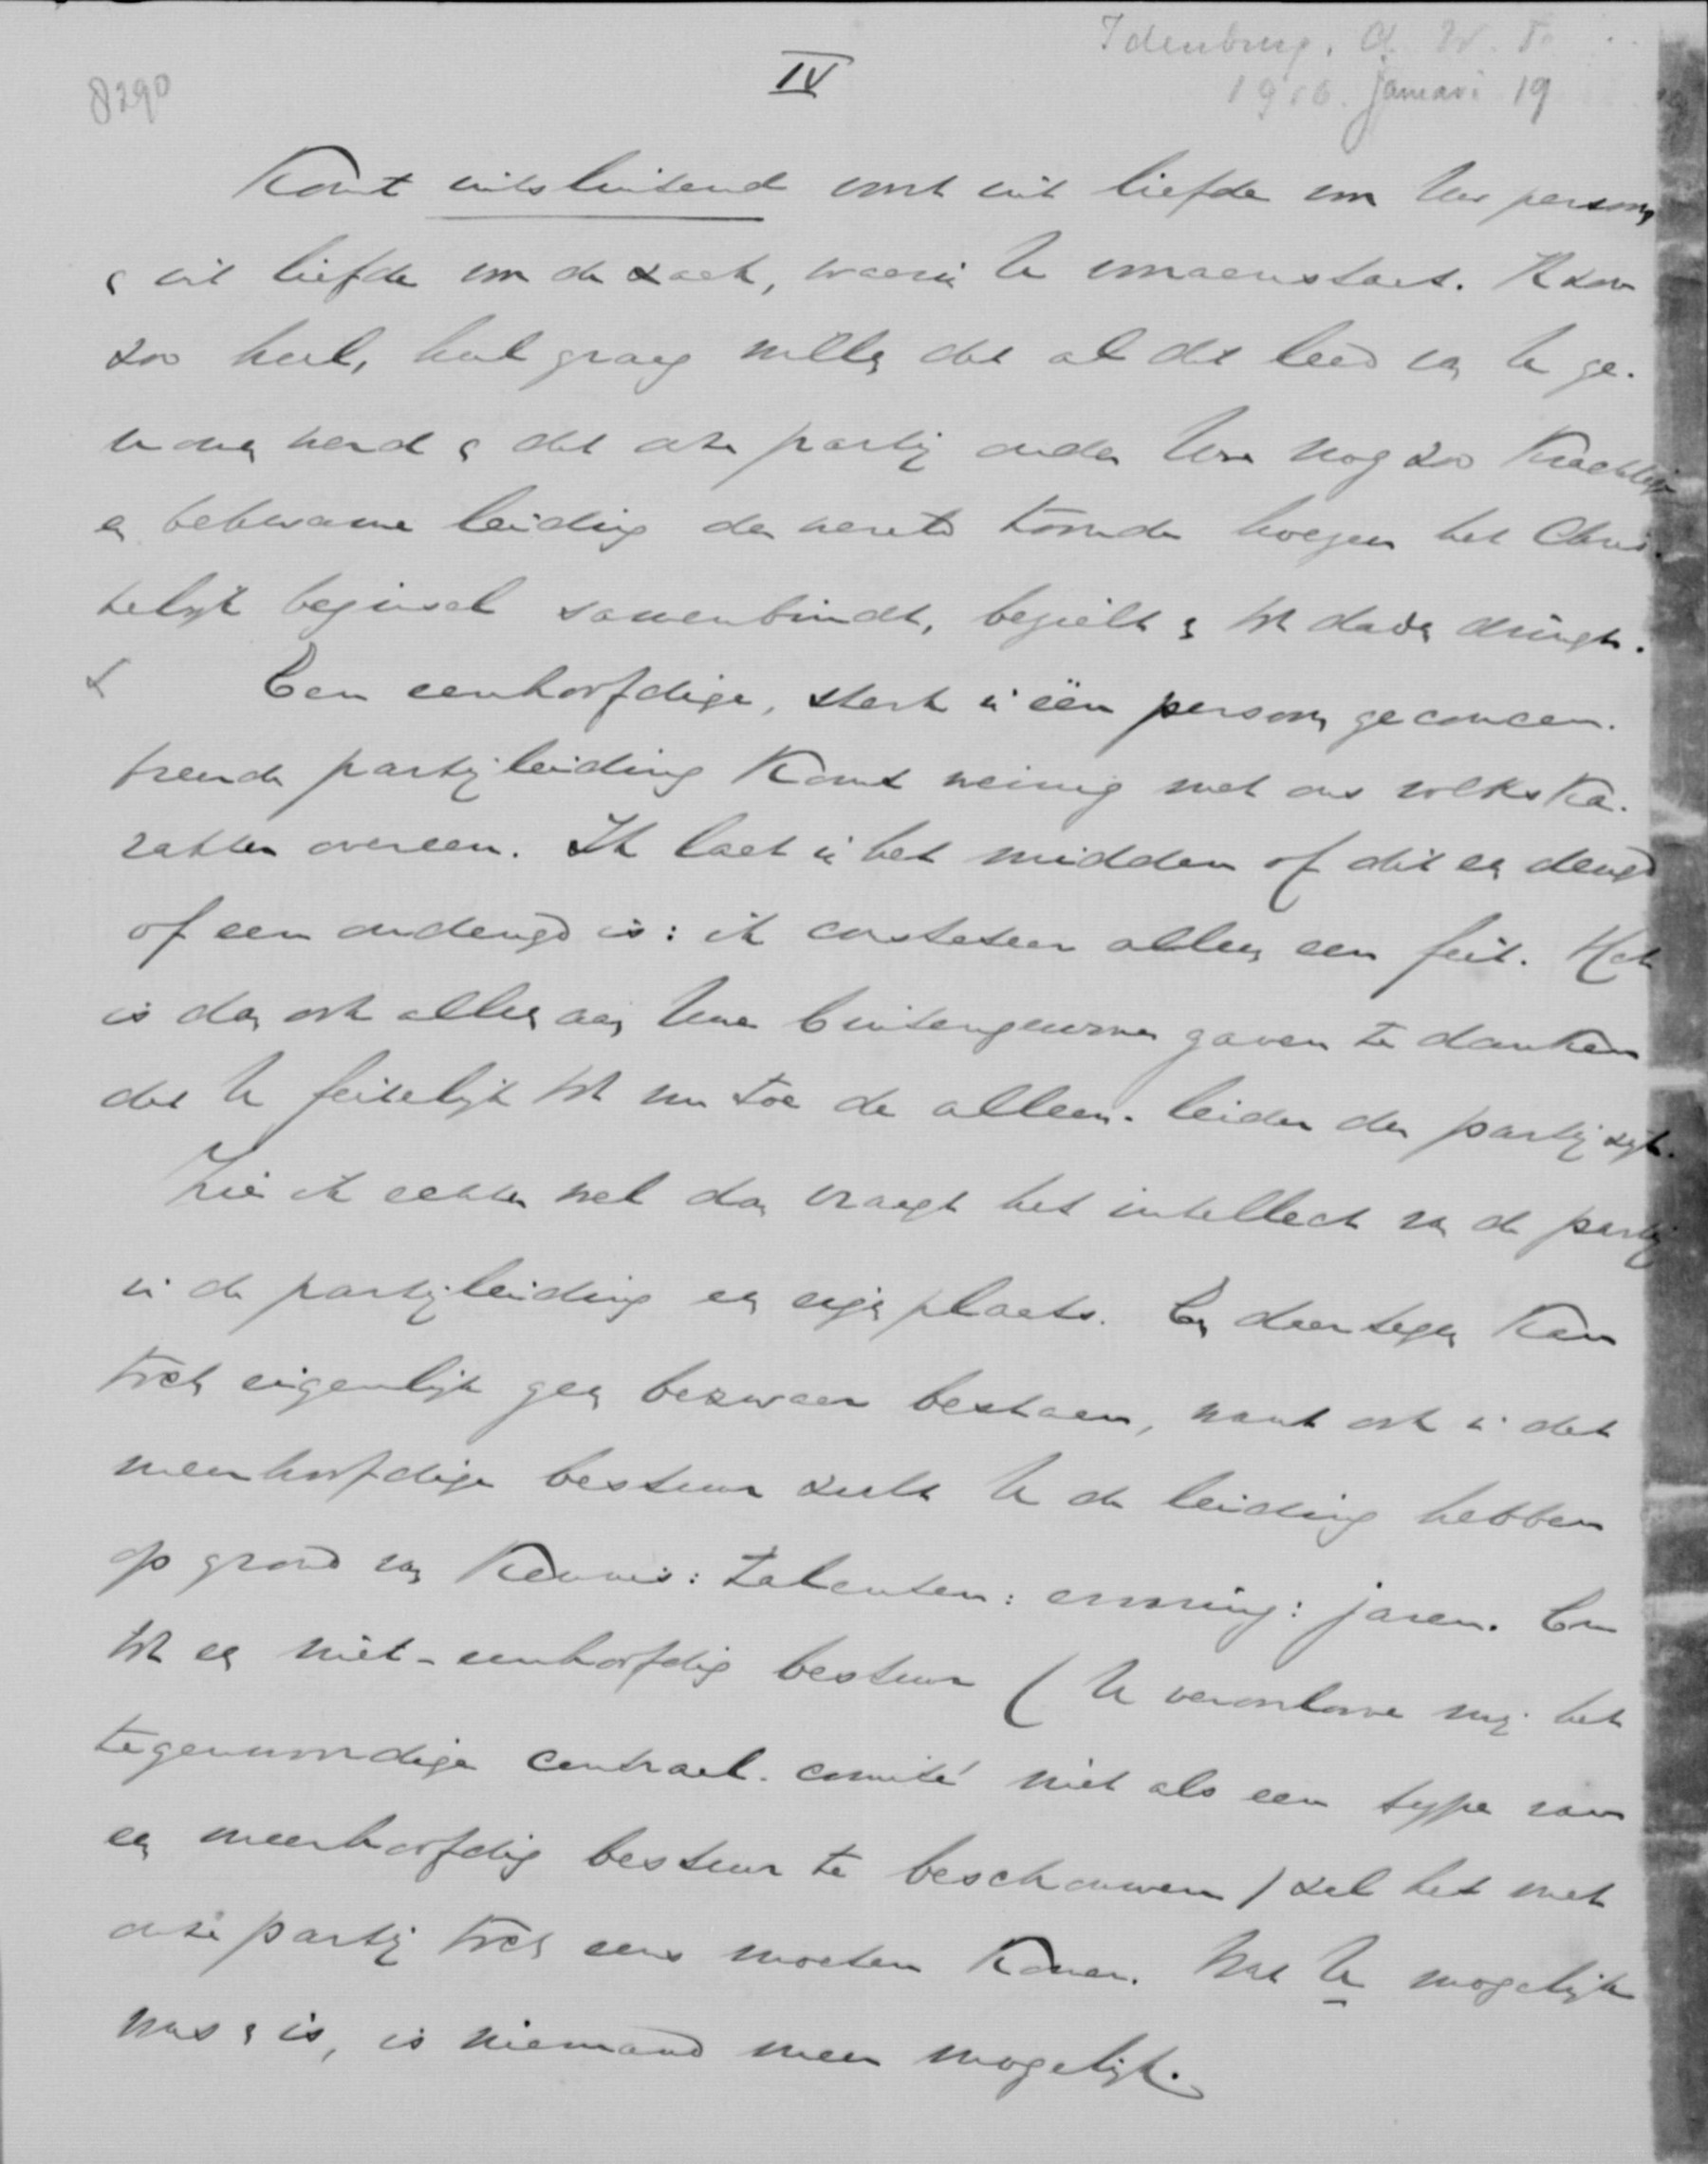 Idenburg, A. W. F.
IV
8290
1916. januari 19
komt uitsluitend voort uit liefde voor Uw persoon
& uit liefde voor de zaak, waarin U vooraanstaat. Ik zou
zoo heel, heel graag willen dat al dit leed van U ge-
nomen werd & dat onze partij onder Uwe nog zoo krachtige
en bekwame leiding der wereld toonde hoezeer het Chris-
telijk beginsel samenbindt, bezielt & tot daden dringt.
x Een eenhoofdige, sterk in één persoon geconcen-
treerde partijleiding komt weinig met ons volkska-
rakter overeen. Ik laat in het midden of dit een deugd
of een ondeugd is: ik constateer alleen een feit. Het
is dan ook alleen aan Uwe buitengewone gaven te danken
dat U feitelijk tot nu toe de alleen-leider der partij zijt.
Zie ik echter wel dan vraagt het intellect van de partij
in de partijleiding een eigen plaats. En daartegen kan
toch eigenlijk geen bezwaar bestaan, want ook in dat
meerhoofdige bestuur zult U de leiding hebben
op grond van kennis: talenten: ervaring: jaren. En
tot een niet-eenhoofdig bestuur (U veroorlove mij het
tegenwoordige centraal-comité niet als een type van
een meerhoofdig bestuur te beschouwen) zal het met
onze partij toch eens moeten komen. Wat U mogelijk
was & is, is niemand meer mogelijk.